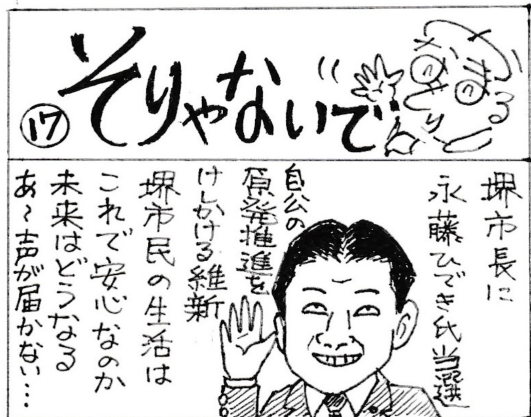 ⑰
そりゃないで
堺市長に
永藤ひでき氏当選
自公の
原発推進を
けしかける維新
堺市民の生活は
これで安心なのか
未来はどうなる
あ〜声が届かない…